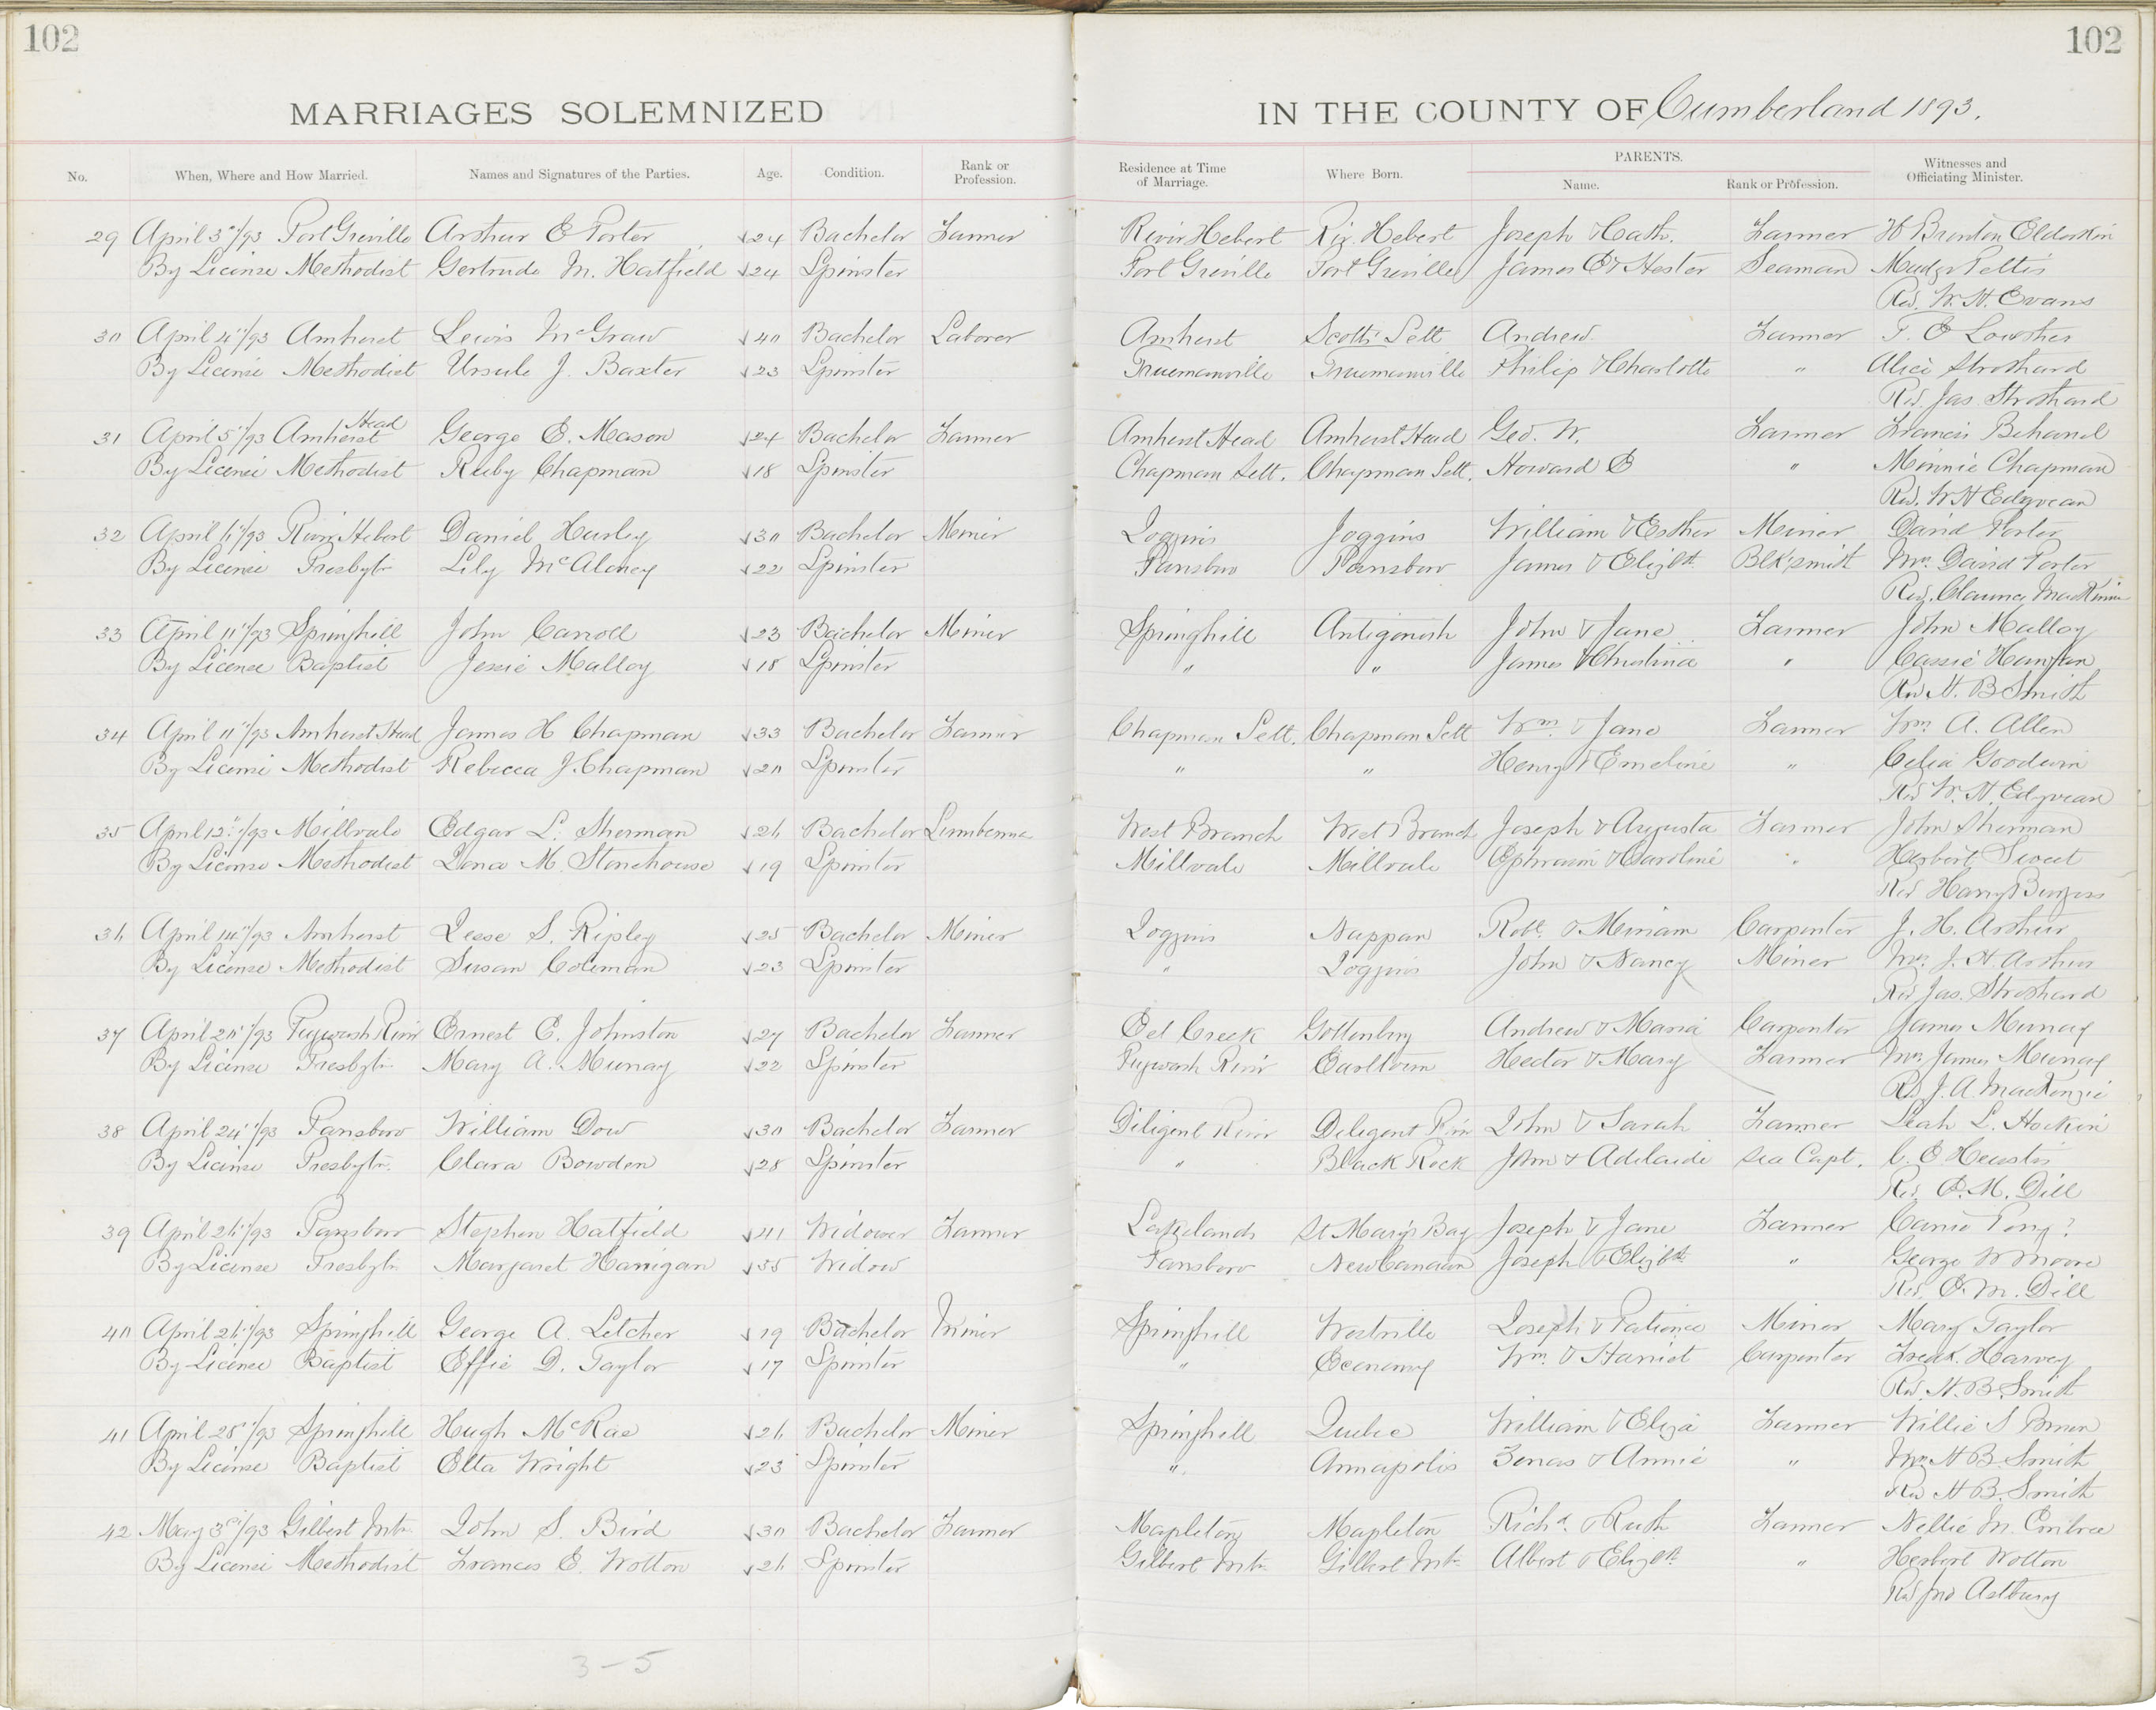 102
102
MARRIAGES SOLEMNIZED
IN THE COUNTY OF Cumberland 1893.
No. When, Where and How Married. Names and Signatures of the Parties. Age. Condition. Rank or Profession. Residence at Time of Marriage. Where Born. PARENTS. Name. Rank or Profession. Witnesses and Officiating Minister.
29 April 3"/93 Port Greville Arthur E Porter 24 Bachelor Farmer River Hebert Riv. Hebert Joseph & Cath. Farmer H Brenton Elderkin
By License Methodist Gertrude M. Hatfield 24 Spinster Port Greville Port Greville James E & Hester Seaman Madge Pettis
Rev. W. H. Evans
30 April 4"/93 Amherst Lewis McGraw 40 Bachelor Laborer Amherst Scotts Sett Andrew Farmer T. E Lowther
By License Methodist Ursule J. Baxter 23 Spinster Truemanville Truemanville Philip & Charlotte " Alice Strothard
Rev. Jas. Strothard
31 April 5"/93 Amherst Head George E. Mason 24 Bachelor Farmer Amherst Head Amherst Head Geo. W. Farmer Francis Behand
By License Methodist Ruby Chapman 18 Spinster Chapman Sett. Chapman Sett. Howard B " Minnie Chapman
Rev. W H Edyvean
32 April 6"/93 River Hebert Daniel Hurley 30 Bachelor Miner Joggins Joggins William & Esther Miner David Porter
By License Presbytn Lily McAloney 22 Spinster Parrsboro Parrsboro James & Elizbth Blksmith Mrs. David Porter
Rev. Clarence MacKinnon
33 April 11"/93 Springhill John Carroll 23 Bachelor Miner Springhill Antigonish John & Jane Farmer John Malloy
By License Baptist Jessie Malloy 18 Spinster " " James & Christina " Cassie
Rev H. B Smith
34 April 11"/93 Amherst Head James H Chapman 33 Bachelor Farmer Chapman Sett. Chapman Sett Wm. & Jane Farmer Wm. A. Allen
By License Methodist Rebecca J. Chapman 20 Spinster " " Henry & Emeline " Celia Goodwin
Rev W. H. Edyvean
35 April 12"/93 Millvale Edgar L. Sherman 26 Bachelor Lumberman West Branch West Branch Joseph & Augusta Farmer John Sherman
By License Methodist Lana M. Stonehouse 19 Spinster Millvale Millvale Ephraim & Caroline " Herbert Sweet
Rev Harry Burgess
36 April 14"/93 Amherst Jesse S. Ripley 25 Bachelor Miner Joggins Nappan Robt. & Miriam Carpenter J. H. Arthur
By License Methodist Susan Coleman 23 Spinster " Joggins John & Nancy Miner Mrs. J. H. Arthur
Rev Jas. Strothard
37 April 20"/93 Pugwash River Ernest E. Johnston 27 Bachelor Farmer Eel Creek Gottenburg Andrew & Maria Carpenter James Murray
By License Presbytn. Mary A. Murray 22 Spinster Pugwash River Earltown Hector & Mary Farmer Mrs James Murray
Rev J. A. MacKenzie
38 April 24"/93 Parrsboro William Dow 30 Bachelor Farmer Diligent River Diligent River John & Sarah Farmer Leah L. Hockin
By License Presbytn. Clara Bowden 28 Spinster " Black Rock John & Adelaide Sea Capt. C. E Heustis
Rev. E. M. Dill
39 April 26"/93 Parrsboro Stephen Hatfield 41 Widower Farmer Lakelands St Marys Bay Joseph & Jane Farmer Carrie Pong?
By License Presbytn Margaret Harrigan 35 Widow Parrsboro New Canaan Joseph & Elizbth " George W Moore
Rev. E. M. Dill
40 April 26"/93 Springhill George A. Letcher 19 Bachelor Miner Springhill Westville Joseph & Patience Miner Mary Taylor
By License Baptist Effie D. Taylor 17 Spinster " Economy Wm. & Harriet Carpenter Fredk. Harvey
Rev. H. B. Smith
41 April 28"/93 Springhill Hugh McRae 26 Bachelor Miner Springhill Quebec William & Eliza Farmer Willie S
By License Baptist Etta Wright 23 Spinster " Annapolis Zenas & Annie " Mrs H B. Smith
Rev H B. Smith
42 May 3rd/93 Gilbert Mtn John S. Bird 30 Bachelor Farmer Mapleton Mapleton Richd. & Ruth Farmer Nellie M. Embree
By License Methodist Frances E. Wotton 26 Spinster Gilbert Mtn Gilbert Mtn Albert & Elizbth " Herbert Wotton
Rev Jno Astbury
3-5